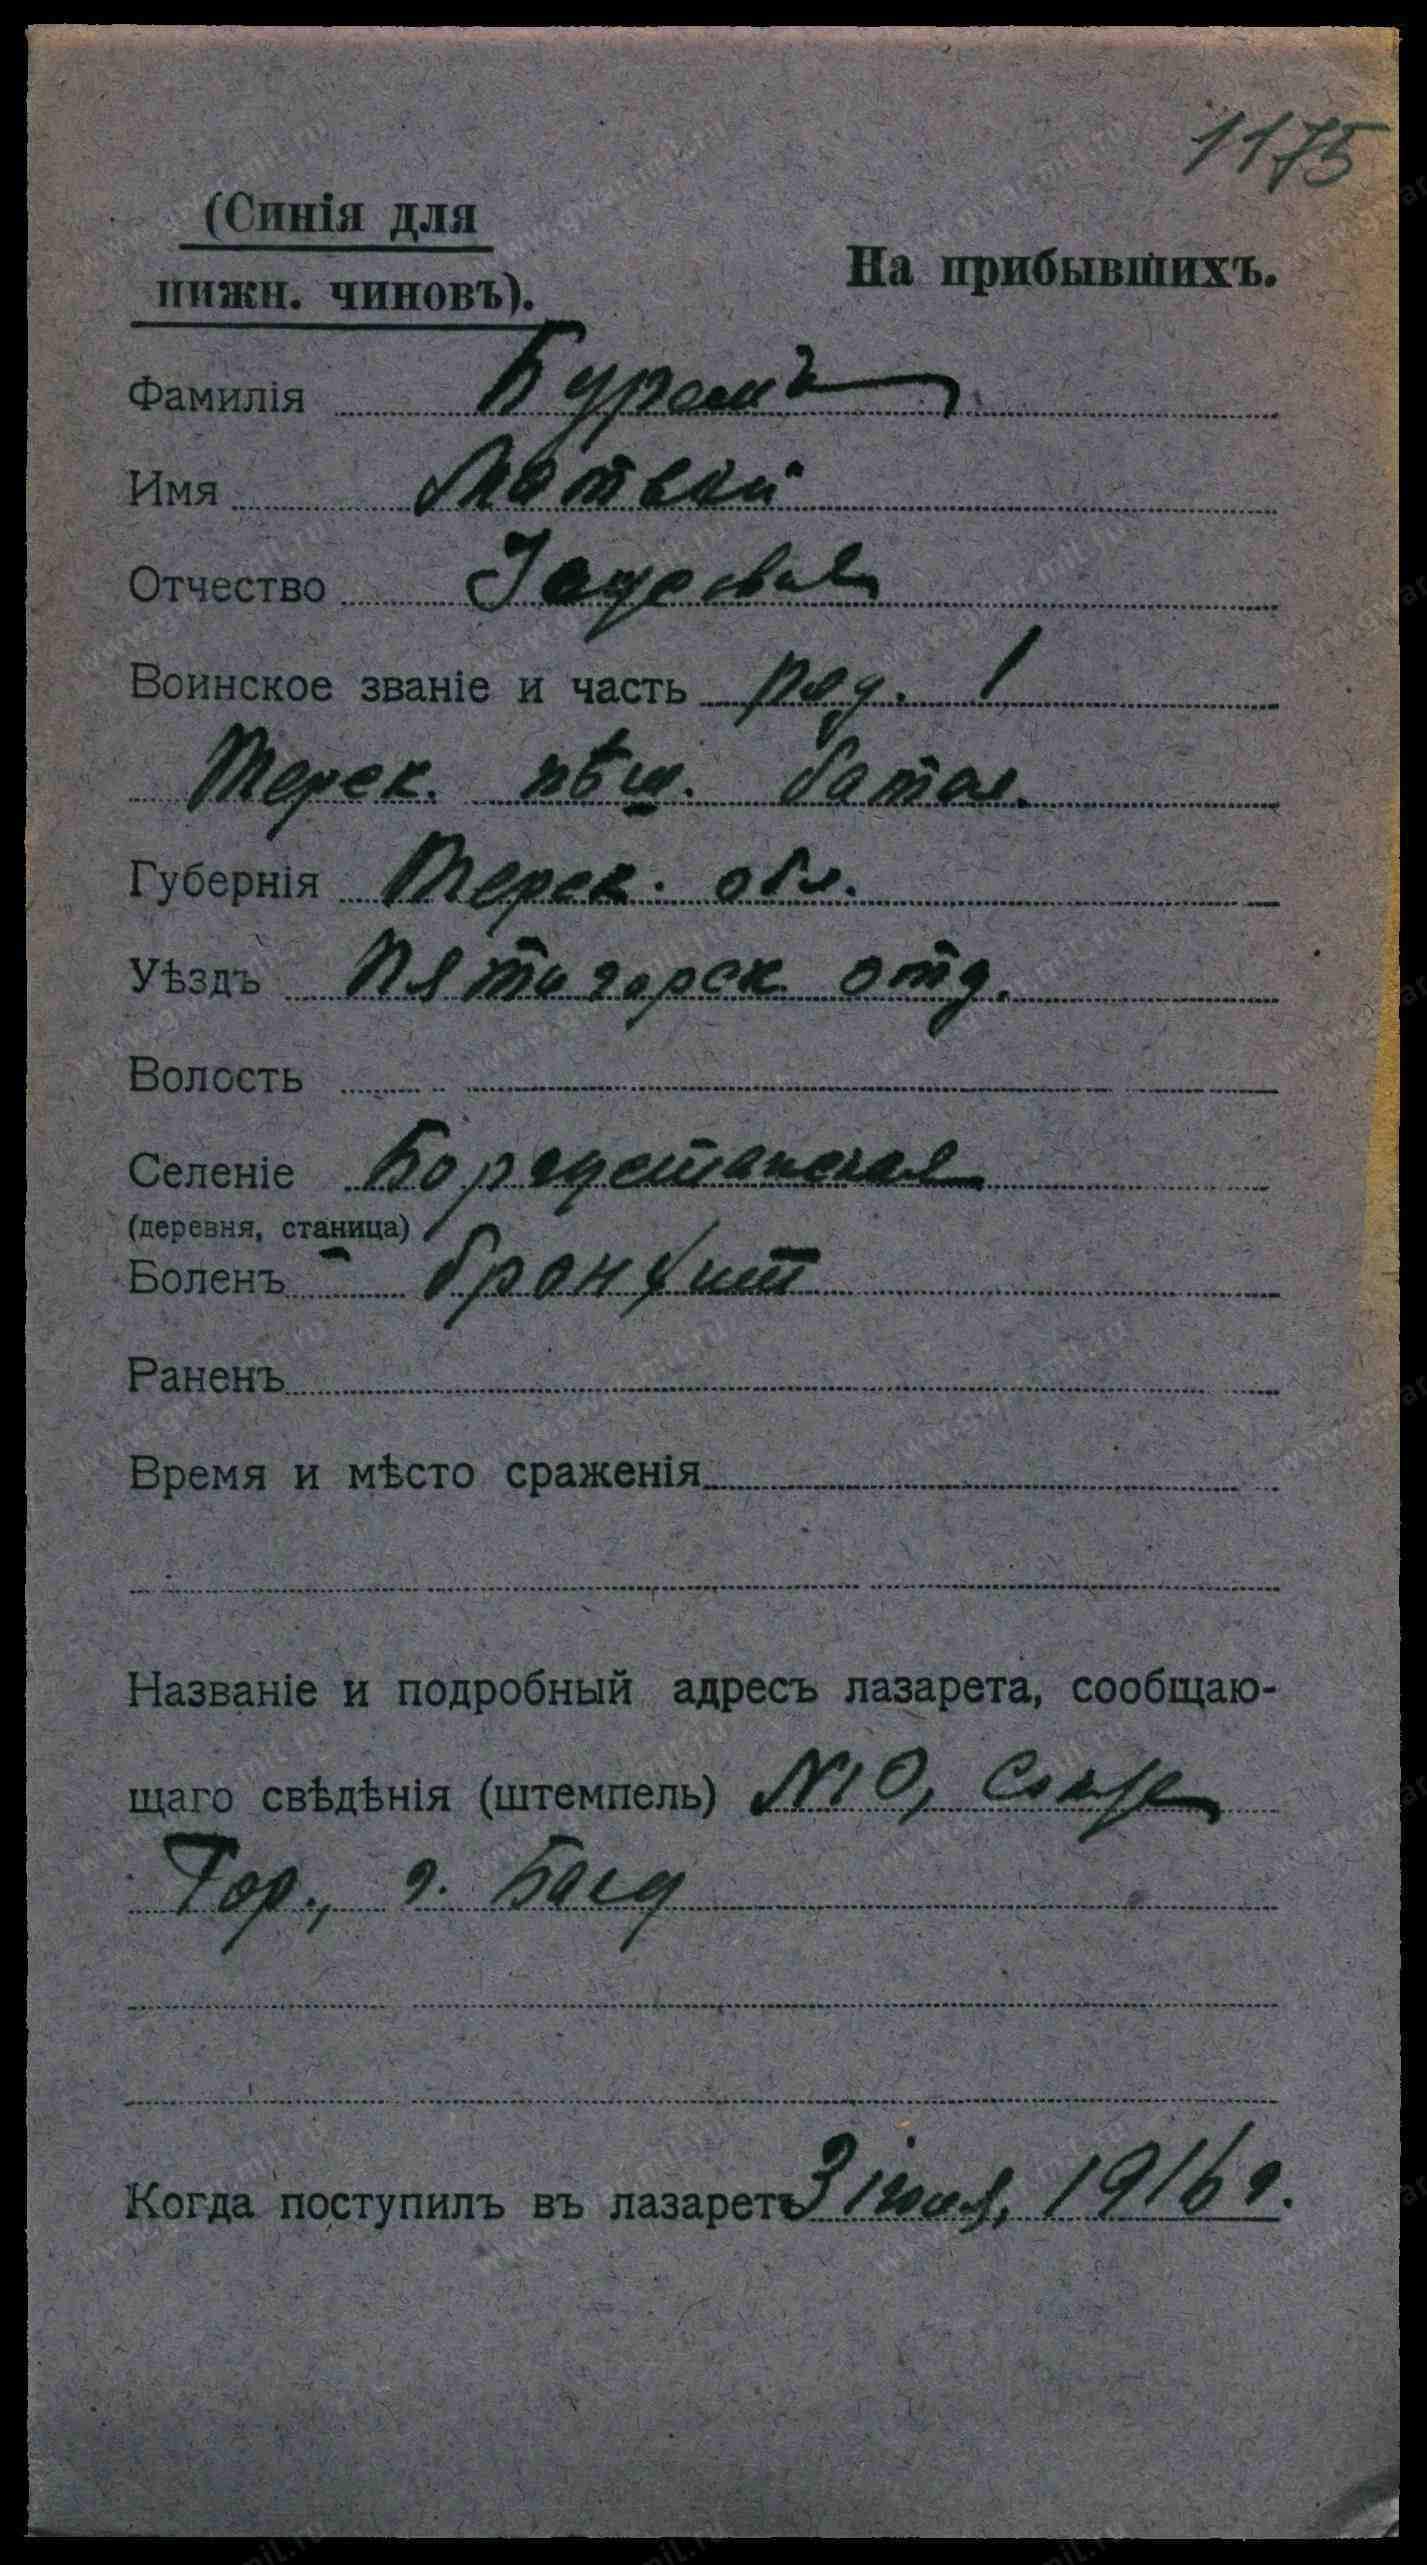 1175
(Синія для
нижн. чиновъ).
На прибывшихъ.
Фамилія
Имя Матвѣй
Отчество
Воинское званіе и часть ряд. 1
Терек. пѣш. батал.
Губернія Терек. обл.
Уѣздъ Пятигорск отд.
Волость
Селеніе Боргустанская
(деревня, станица)
Боленъ бронхит
Раненъ
Время и мѣсто сраженія
Названіе и подробный адресъ лазарета, сообщаю-
щаго свѣдѣнія (штемпель) №10,
Гор., г.
Когда поступилъ въ лазаретъ 3 іюля, 1916 г.